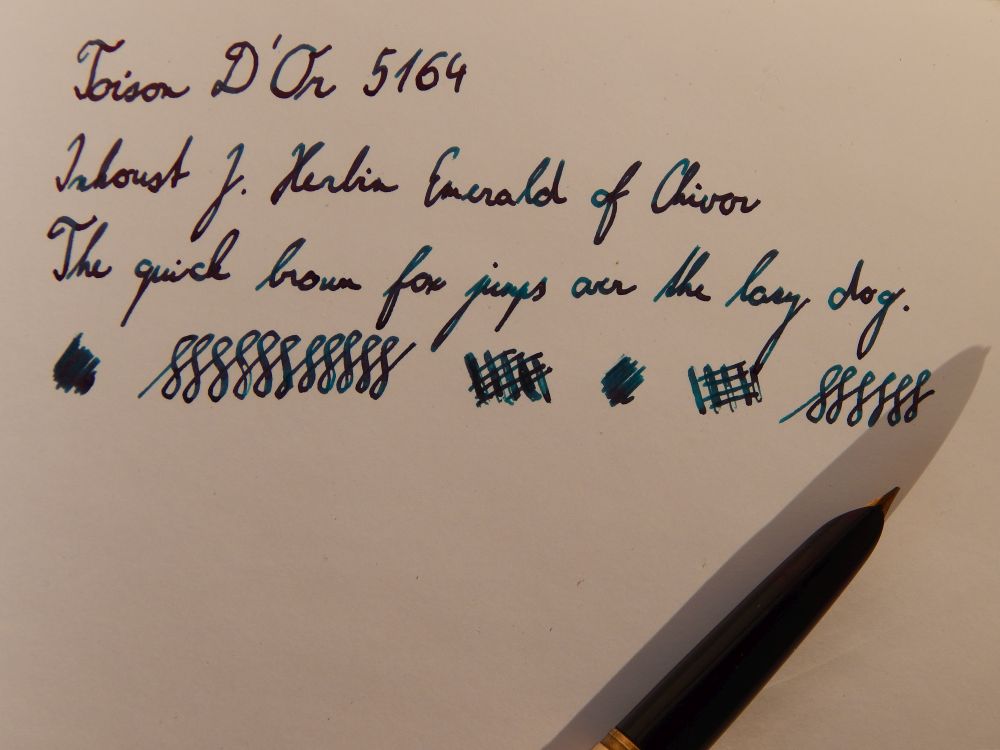 Toison D'Or 5164
Inkoust J. Herbin Emerald of Chivor
The quick brown fox jumps over the lazy dog.